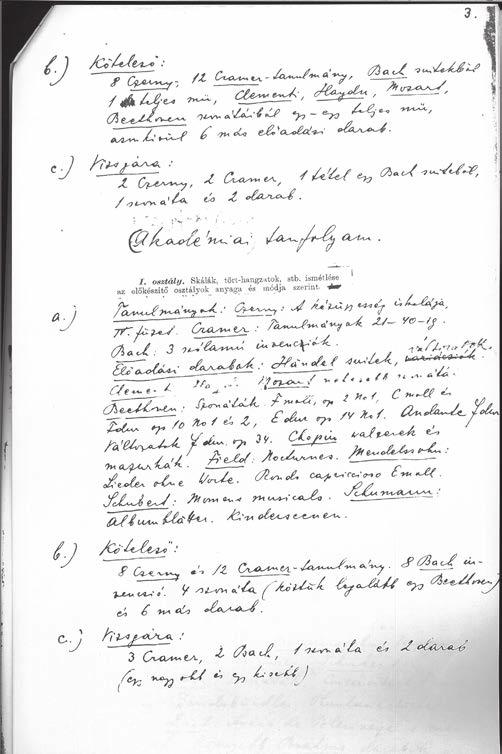 3.
b.) Kötelező:
8 Czerny, 12 Cramer-tanulmány, Bach suitekből
1 teljes mű, Clementi, Haydn, Mozart,
Beethoven szonátáiból egy-egy teljes mű,
azonkívül 6 más előadási darab.
c.) Vizsgára:
2 Czerny, 2 Cramer, 1 tétel egy Bach suiteből,
1 szonáta és 2 darab.
Akadémiai tanfolyam.
I. osztály. Skálák, tört-hangzatok, stb. ismétlése
az előkészítő osztályok anyaga és módja szerint.
a.) Tanulmányok: Czerny: A kézügyesség iskolája,
IV. füzet. Cramer: Tanulmányok 21-40-ig.
Bach: 3 szólamú invenciók.
Előadási darabok: Händel suitek, változatok
Clementi Mozart nehezebb szonátái
Beethoven: Szonáták F moll, op 2 No 1, C moll és
F dur op 10 No 1 és 2, E dur op 14 No 1. Andante F dur
Változatok F dur, op 34. Chopin walzerek és
mazurkák. Field: Nocturnes. Mendelssohn:
Lieder ohne Worte. Rondo capriccioso E moll.
Schubert: Momens musicals. Schumann:
Albumblätter. Kinderscenen.
b.) Kötelező:
8 Czerny és 12 Cramer-tanulmány. 8 Bach in-
venció. 4 szonáta (köztük legalább egy Beethoven)
és 6 más darab.
c.) Vizsgára:
3 Cramer, 2 Bach, 1 szonáta és 2 darab
(egy nagyobb és egy kisebb)